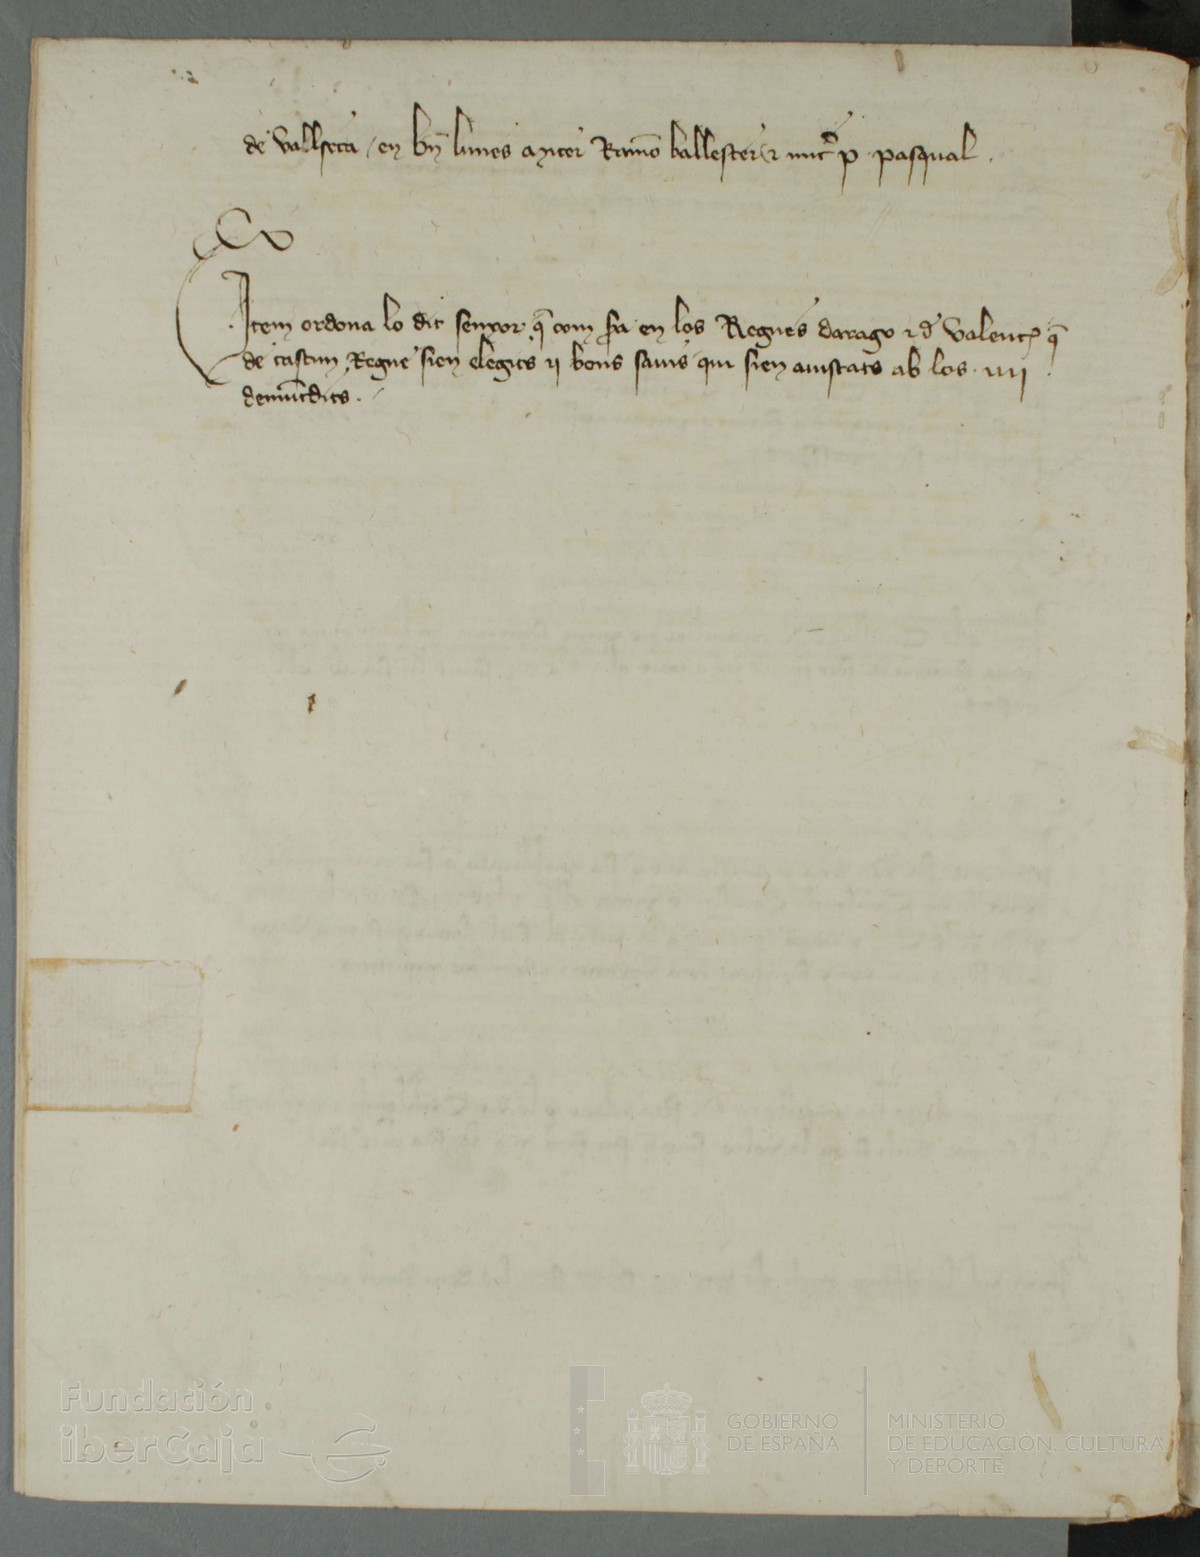 de Vallseca / en bñ lunes axicer Ramō ballester ⁊ mic̃ p pasqual .
Item ordona lo dit senyor q̄ com sia en los Regnes darago ⁊ đ Valenc̃ q̄
de cascun Regne sien elegits ij bons savis qui sien aiustats ab los . iiii .
demūtdits .
Fundación
iberCaja
GOBIERNO
DE ESPAÑA
MINISTERIO
DE EDUCACIÓN, CULTURA
Y DEPORTE